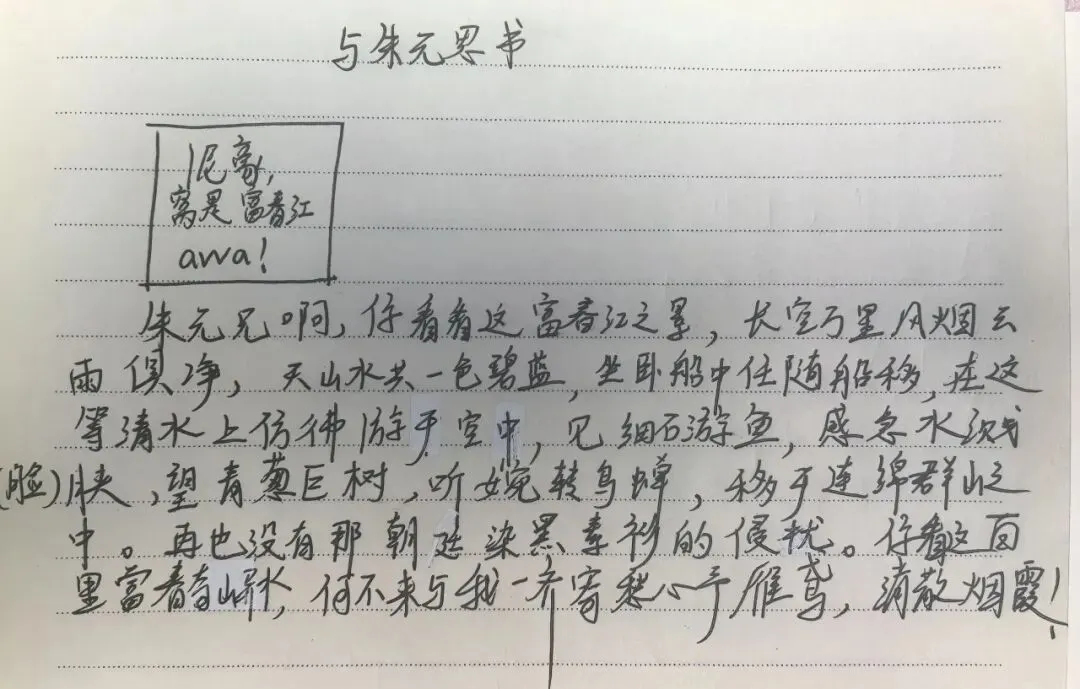 与朱元思书
伲豪,
窝是富春江
awa!
朱元兄啊,你看看这富春江之景,长空万里风烟云
雨俱净,天山水共一色碧蓝,坐卧船中任随船移,在这
等清水上仿佛游于空中,见细石游鱼,感急水溅
(脸)颊,望青葱巨树,听婉转鸟蝉,移于连绵群山之
中。再也没有那朝廷染黑素衫的侵扰。你看这百
里富春奇山异水,何不来与我一齐寄愁心于雁鸢,消散烟霞!